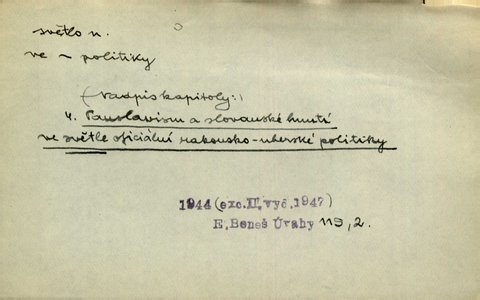 světlo n.
ve ~ politiky
(nadpis kapitoly:)
4. Panslavism a slovanské hnutí
ve světle oficiální rakousko-uherské politiky
1944 (exc.II.vyd.1947)
E.Beneš Úvahy 119,2.